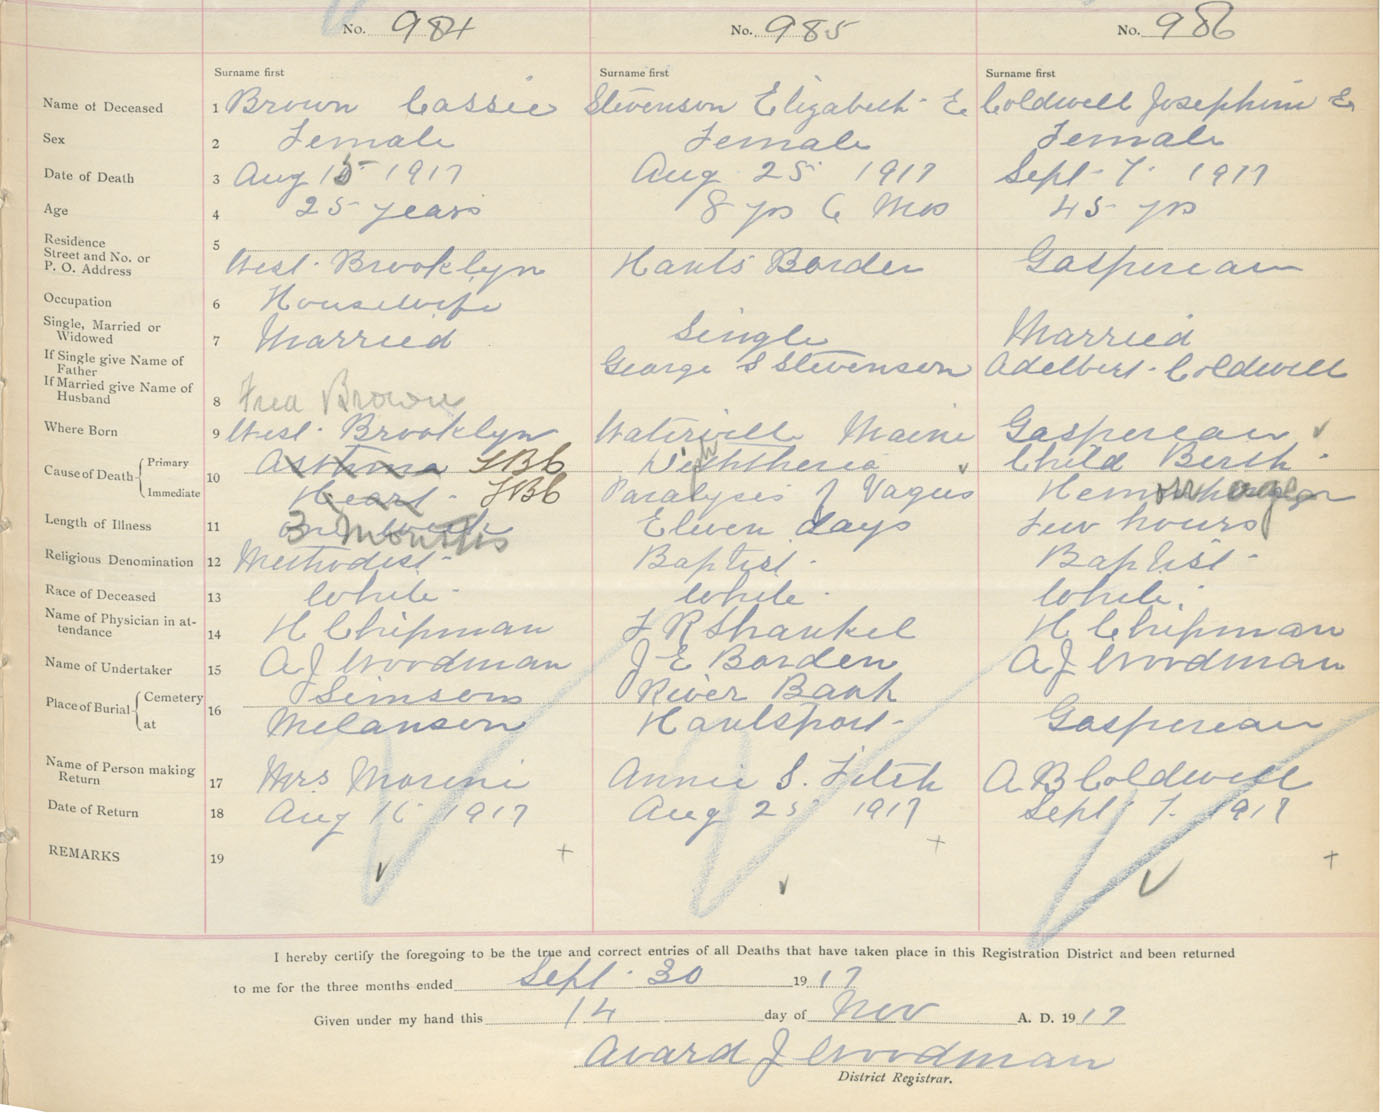 No. 984 No. 985 No. 986
Surname first Surname first Surname first
Name of Deceased 1 Brown Cassie Stevenson Elizabeth E Coldwell Josephine E
Sex 2 Female Female Female
Date of Death 3 Aug 15 1917 Aug 25 1917 Sept 7 1917
Age 4 25 years 8 yrs 6 Mos 45 yrs
Residence 5
Street and No. or
P. O. Address West Brooklyn Hants Border Gaspereau
Occupation 6 Housewife
Single, Married or
Widowed 7 Married Single Married
If Single give Name of
Father George S Stevenson Adelbert Coldwell
If Married give Name of
Husband 8 Fred Brown
Where Born 9 West Brooklyn Waterville Maine Gaspereau
Cause of Death Primary 10 Asthma TB6 Diphtheria Child Berth
Immediate Heart TB6 Paralysis of Vagus Hemorrhage
Length of Illness 11 one week 3 Months Eleven days Few hours
Religious Denomination 12 Methodist Baptist Baptist
Race of Deceased 13 White White White
Name of Physician in at-
tendance 14 H Chipman F R Shankel H Chipman
Name of Undertaker 15 A J Woodman J E Borden A J Woodman
Place of Burial Cemetery 16 Simsons River Bank
at Melanson Hantsport Gaspereau
Name of Person making
Return 17 Mrs Annie S. Fitch A B Coldwell
Date of Return 18 Aug 16 1917 Aug 25 1917 Sept 7 1917
REMARKS 19
I hereby certify the foregoing to be the true and correct entries of all Deaths that have taken place in this Registration District and been returned
to me for the three months ended Sept 30 1917
Given under my hand this 14 day of Nov A. D. 1917
Avard J Woodman
District Registrar.